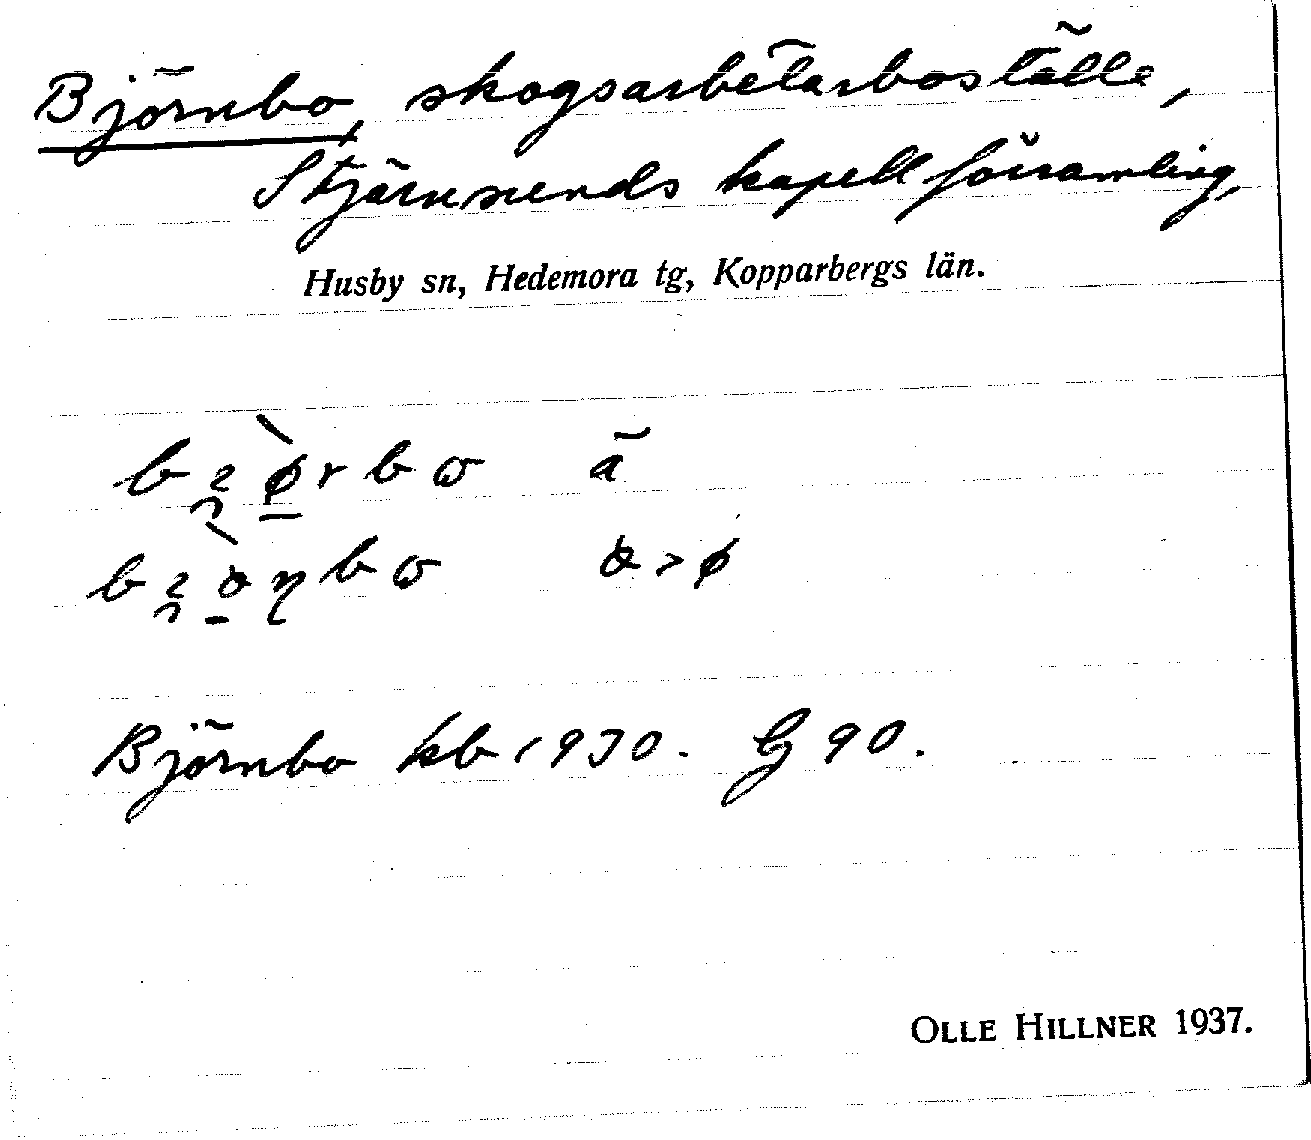 Björnbo, skogsarbetarboställe,
Stjärnsunds kapellförsamling,
Husby sn, Hedemora tg, Kopparbergs län.
ã
Björnbo kb 1930. G 90.
OLLE HILLNER 1937.